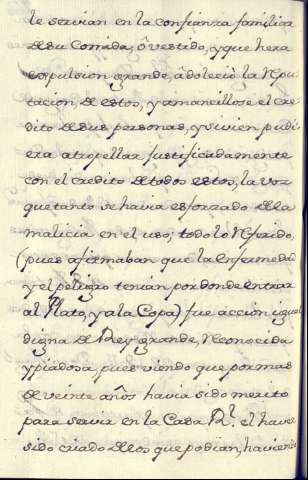 le servian en la confianza familiar
de su Comida, ô vestido, y que hera
expulsion grande, âdoleciò la Repu
tacion, de estos, y amancillose el cre
dito de sus personas, y si vien pudi
era atropellar justificadamente
con el credito de todos estos, la voz
que tanto se havia esforzado de la
malicia en el uso; todo lo Referido,
(pues afirmaban que la enfermedad
y el peligro tenian por donde entrar
al Plato, y a la Copa) fue acción igual
digna de Rey grande, Reconocida
y piadosa, pues viendo que por mas
de veinte años havia sido merito
para servir en la Casa Rl. el haver
sido criado de los que podian, haviendo